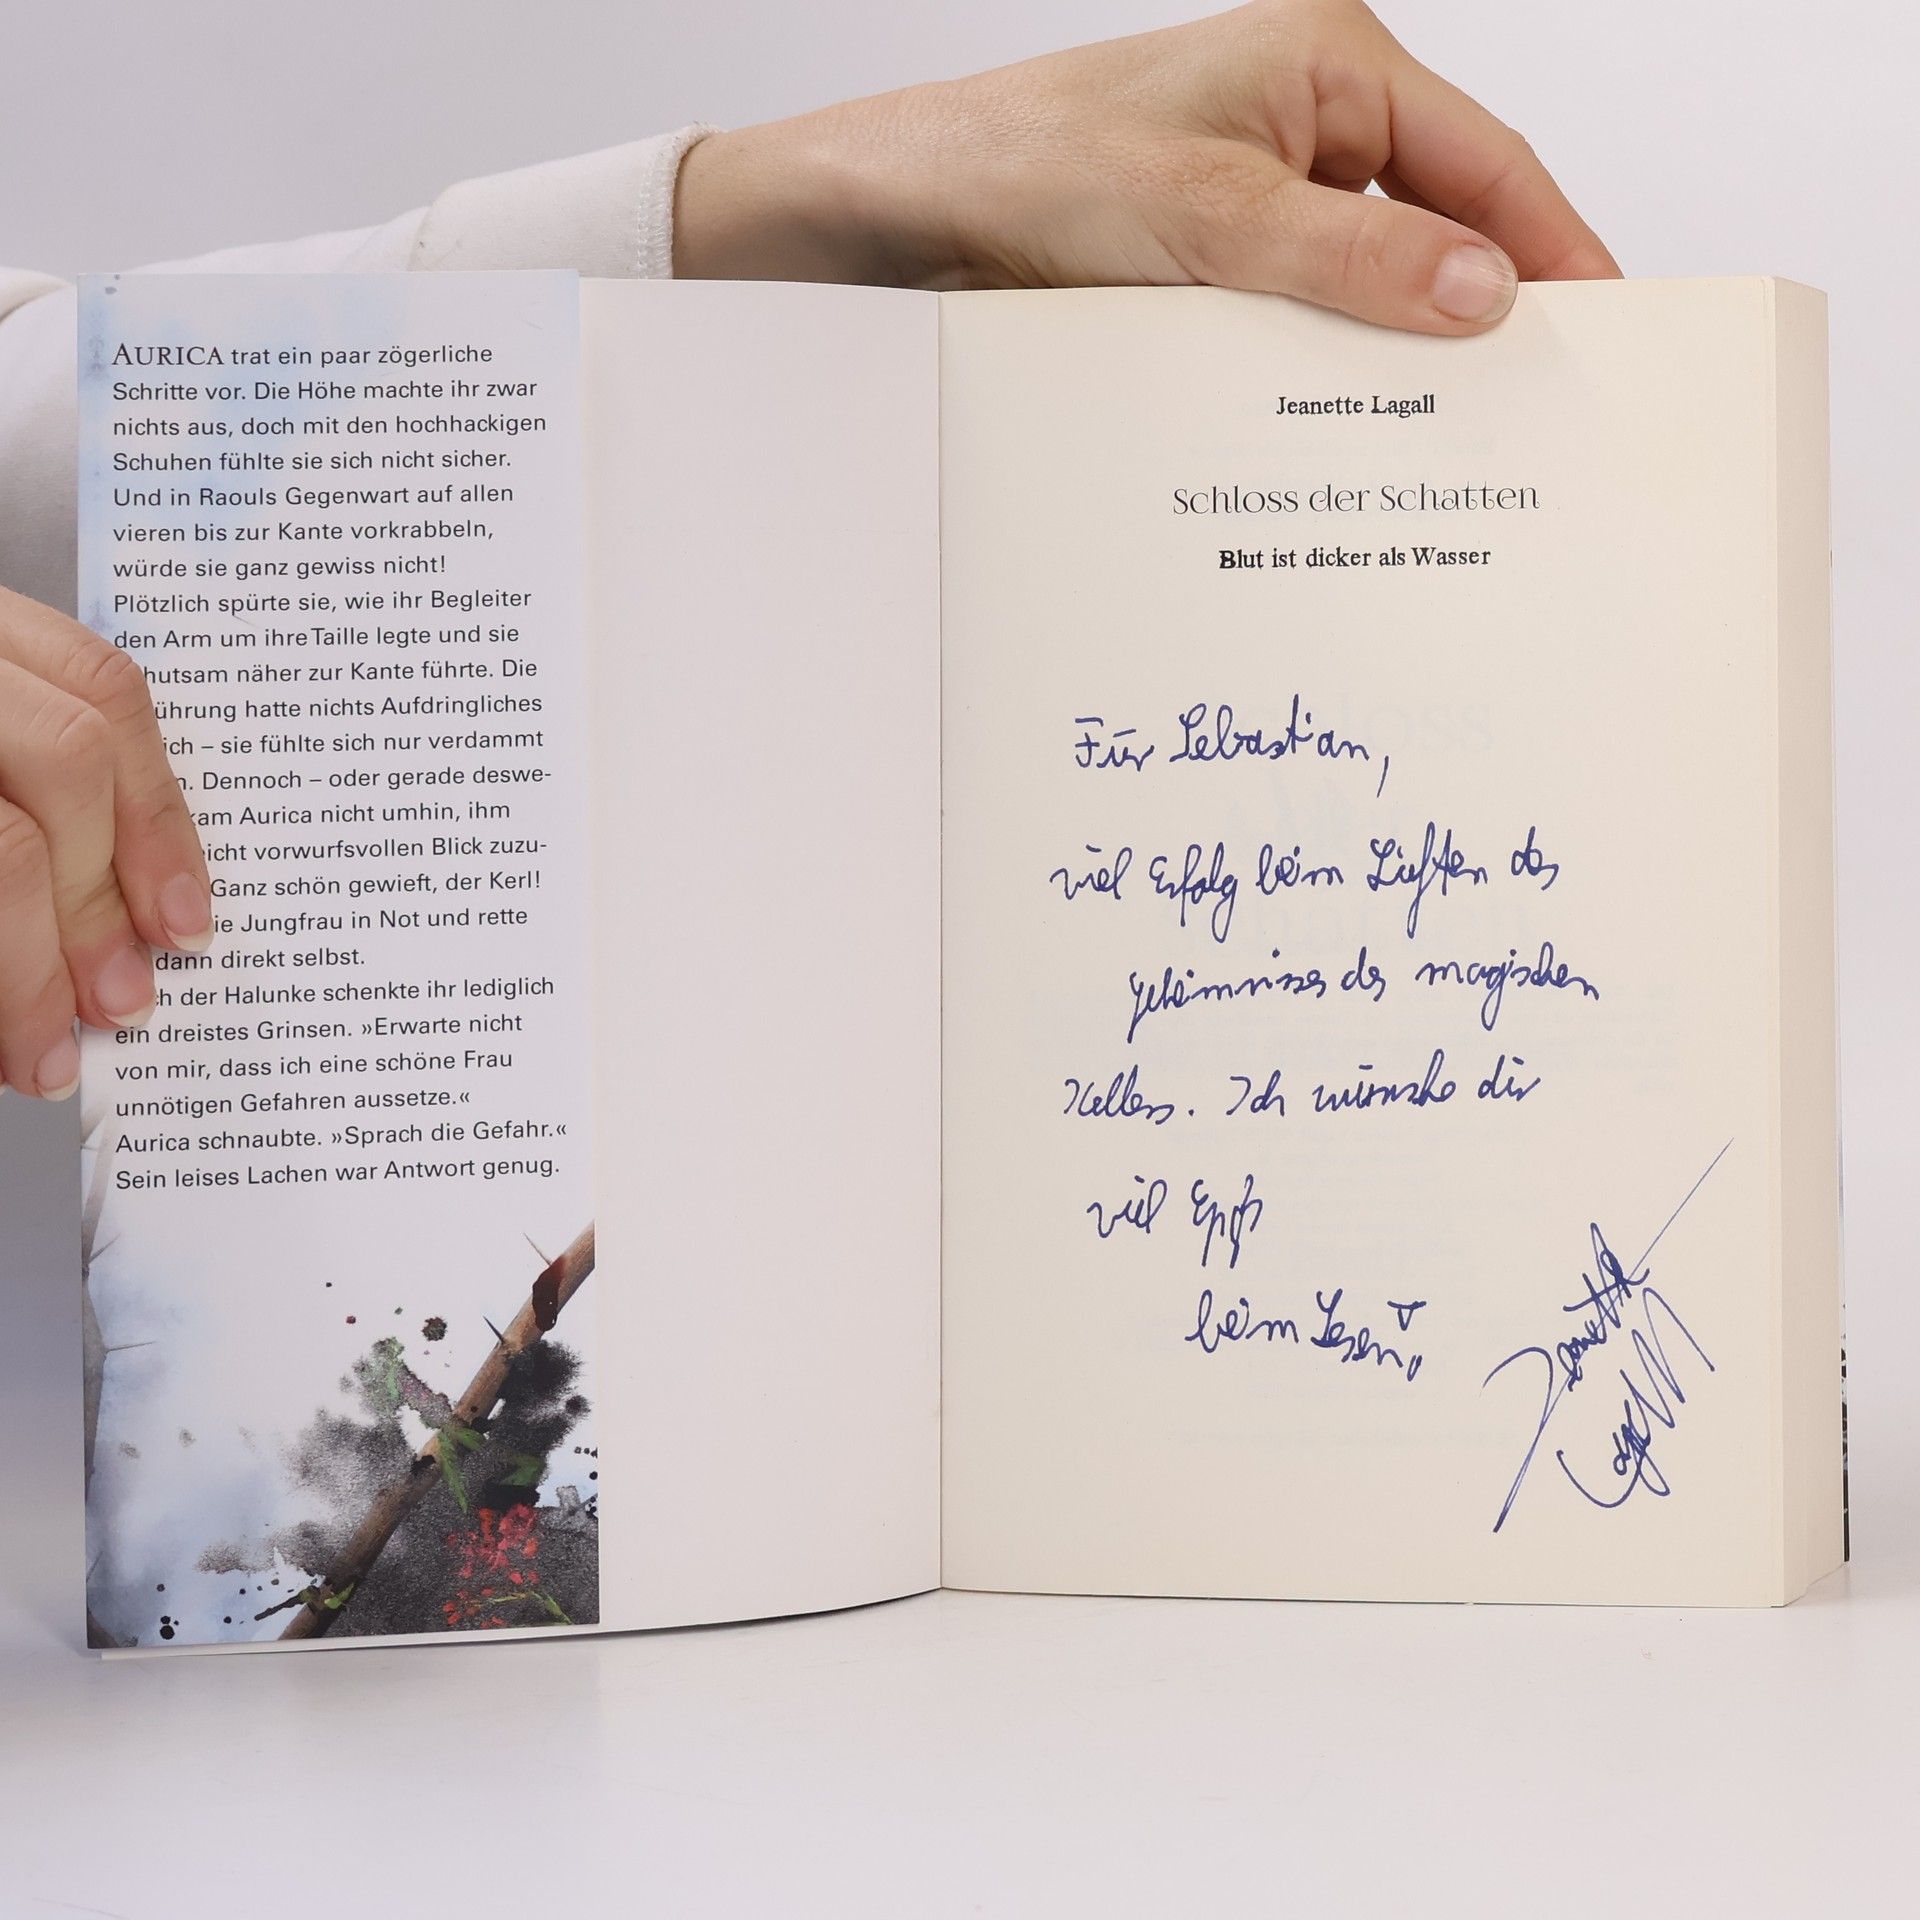 AURICA trat ein paar zögerliche
Schritte vor. Die Höhe machte ihr zwar
nichts aus, doch mit den hochhackigen
Schuhen fühlte sie sich nicht sicher.
Und in Raouls Gegenwart auf allen
vieren bis zur Kante vorkrabbeln,
würde sie ganz gewiss nicht!
Plötzlich spürte sie, wie ihr Begleiter
den Arm um ihre Taille legte und sie
hutsam näher zur Kante führte. Die
ührung hatte nichts Aufdringliches
ich – sie fühlte sich nur verdammt
n. Dennoch – oder gerade deswe-
kam Aurica nicht umhin, ihm
eicht vorwurfsvollen Blick zuzu-
Ganz schön gewieft, der Kerl!
ie Jungfrau in Not und rette
dann direkt selbst.
ch der Halunke schenkte ihr lediglich
ein dreistes Grinsen. »Erwarte nicht
von mir, dass ich eine schöne Frau
unnötigen Gefahren aussetze.«
Aurica schnaubte. »Sprach die Gefahr.«
Sein leises Lachen war Antwort genug.
Jeanette Lagall
Schloss der Schatten
Blut ist dicker als Wasser
Für Sebastian,
viel Erfolg beim Lüften des
Geheimnisses des magischen
Kellers. Ich wünsche dir
viel
beim Lesen!
Jeanette
Lagall